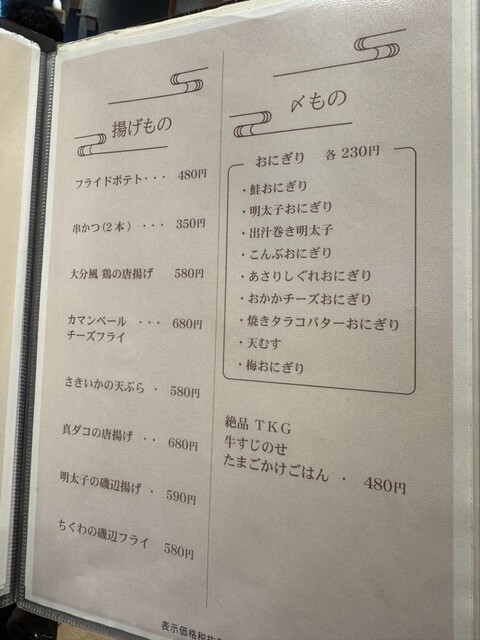 揚げもの
フライドポテト・・・ 480円
串かつ(2本) ・・・ 350円
大分風 鶏の唐揚げ 580円
カマンベール ・・・ 680円
チーズフライ
さきいかの天ぷら ・ 580円
真ダコの唐揚げ ・・ 680円
明太子の磯辺揚げ ・ 590円
ちくわの磯辺フライ 580円
〆もの
おにぎり 各230円
・鮭おにぎり
・明太子おにぎり
・出汁巻き明太子
・こんぶおにぎり
・あさりしぐれおにぎり
・おかかチーズおにぎり
・焼きタラコバターおにぎり
・天むす
・梅おにぎり
絶品 TKG
牛すじのせ
たまごかけごはん ・ 480円
表示価格税抜